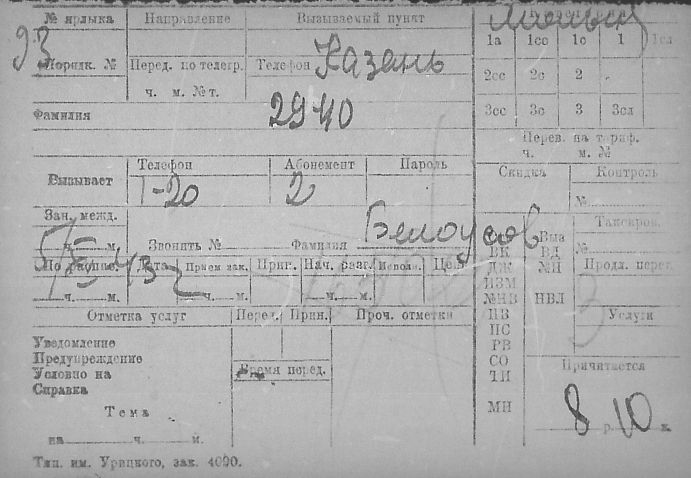 № ярлыка Направление Вызываемый пункт
93 1а 1сс 1с 1 1сл
Порядк. № Перед. по телегр. Телефон Казань 2сс 2с 2
ч. м. № т.
Фамилия 2940 3сс 3с 3 3сл
Перев. на тариф.
ч. м. №
Телефон Абонемент Пароль Скидка Контроль
Вызывает 1-20 2 №
Зак. межд. Белоусов Таксиров.
ч. м. Звонить № Фамилия ВК Выз №
Дата Прием зак. Приг. Нач. разг. Исполн. Цех ДЖ ВД №П Продл. перег.
ч. м. ч. м. ч. м. ИЗМ
№НВ НВЛ
Отметка услуг Перед. Прин. Проч. отметки ПВ Услуги
Уведомление ПС
Предупреждение РВ
Условно на Время перед. СО Причитается
Справка ЧИ
Тема МИ 8 р. 10 к.
на ч. м.
Тип. им. Урицкого, зак. 4090.